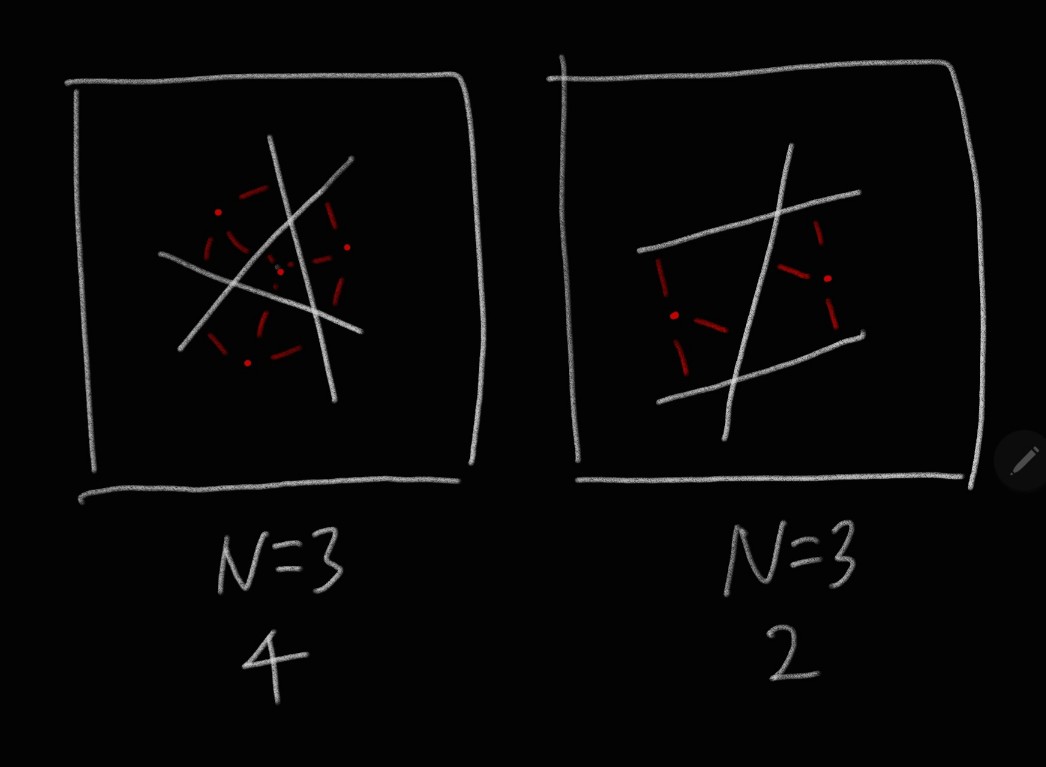 N=3
4
N=3
2